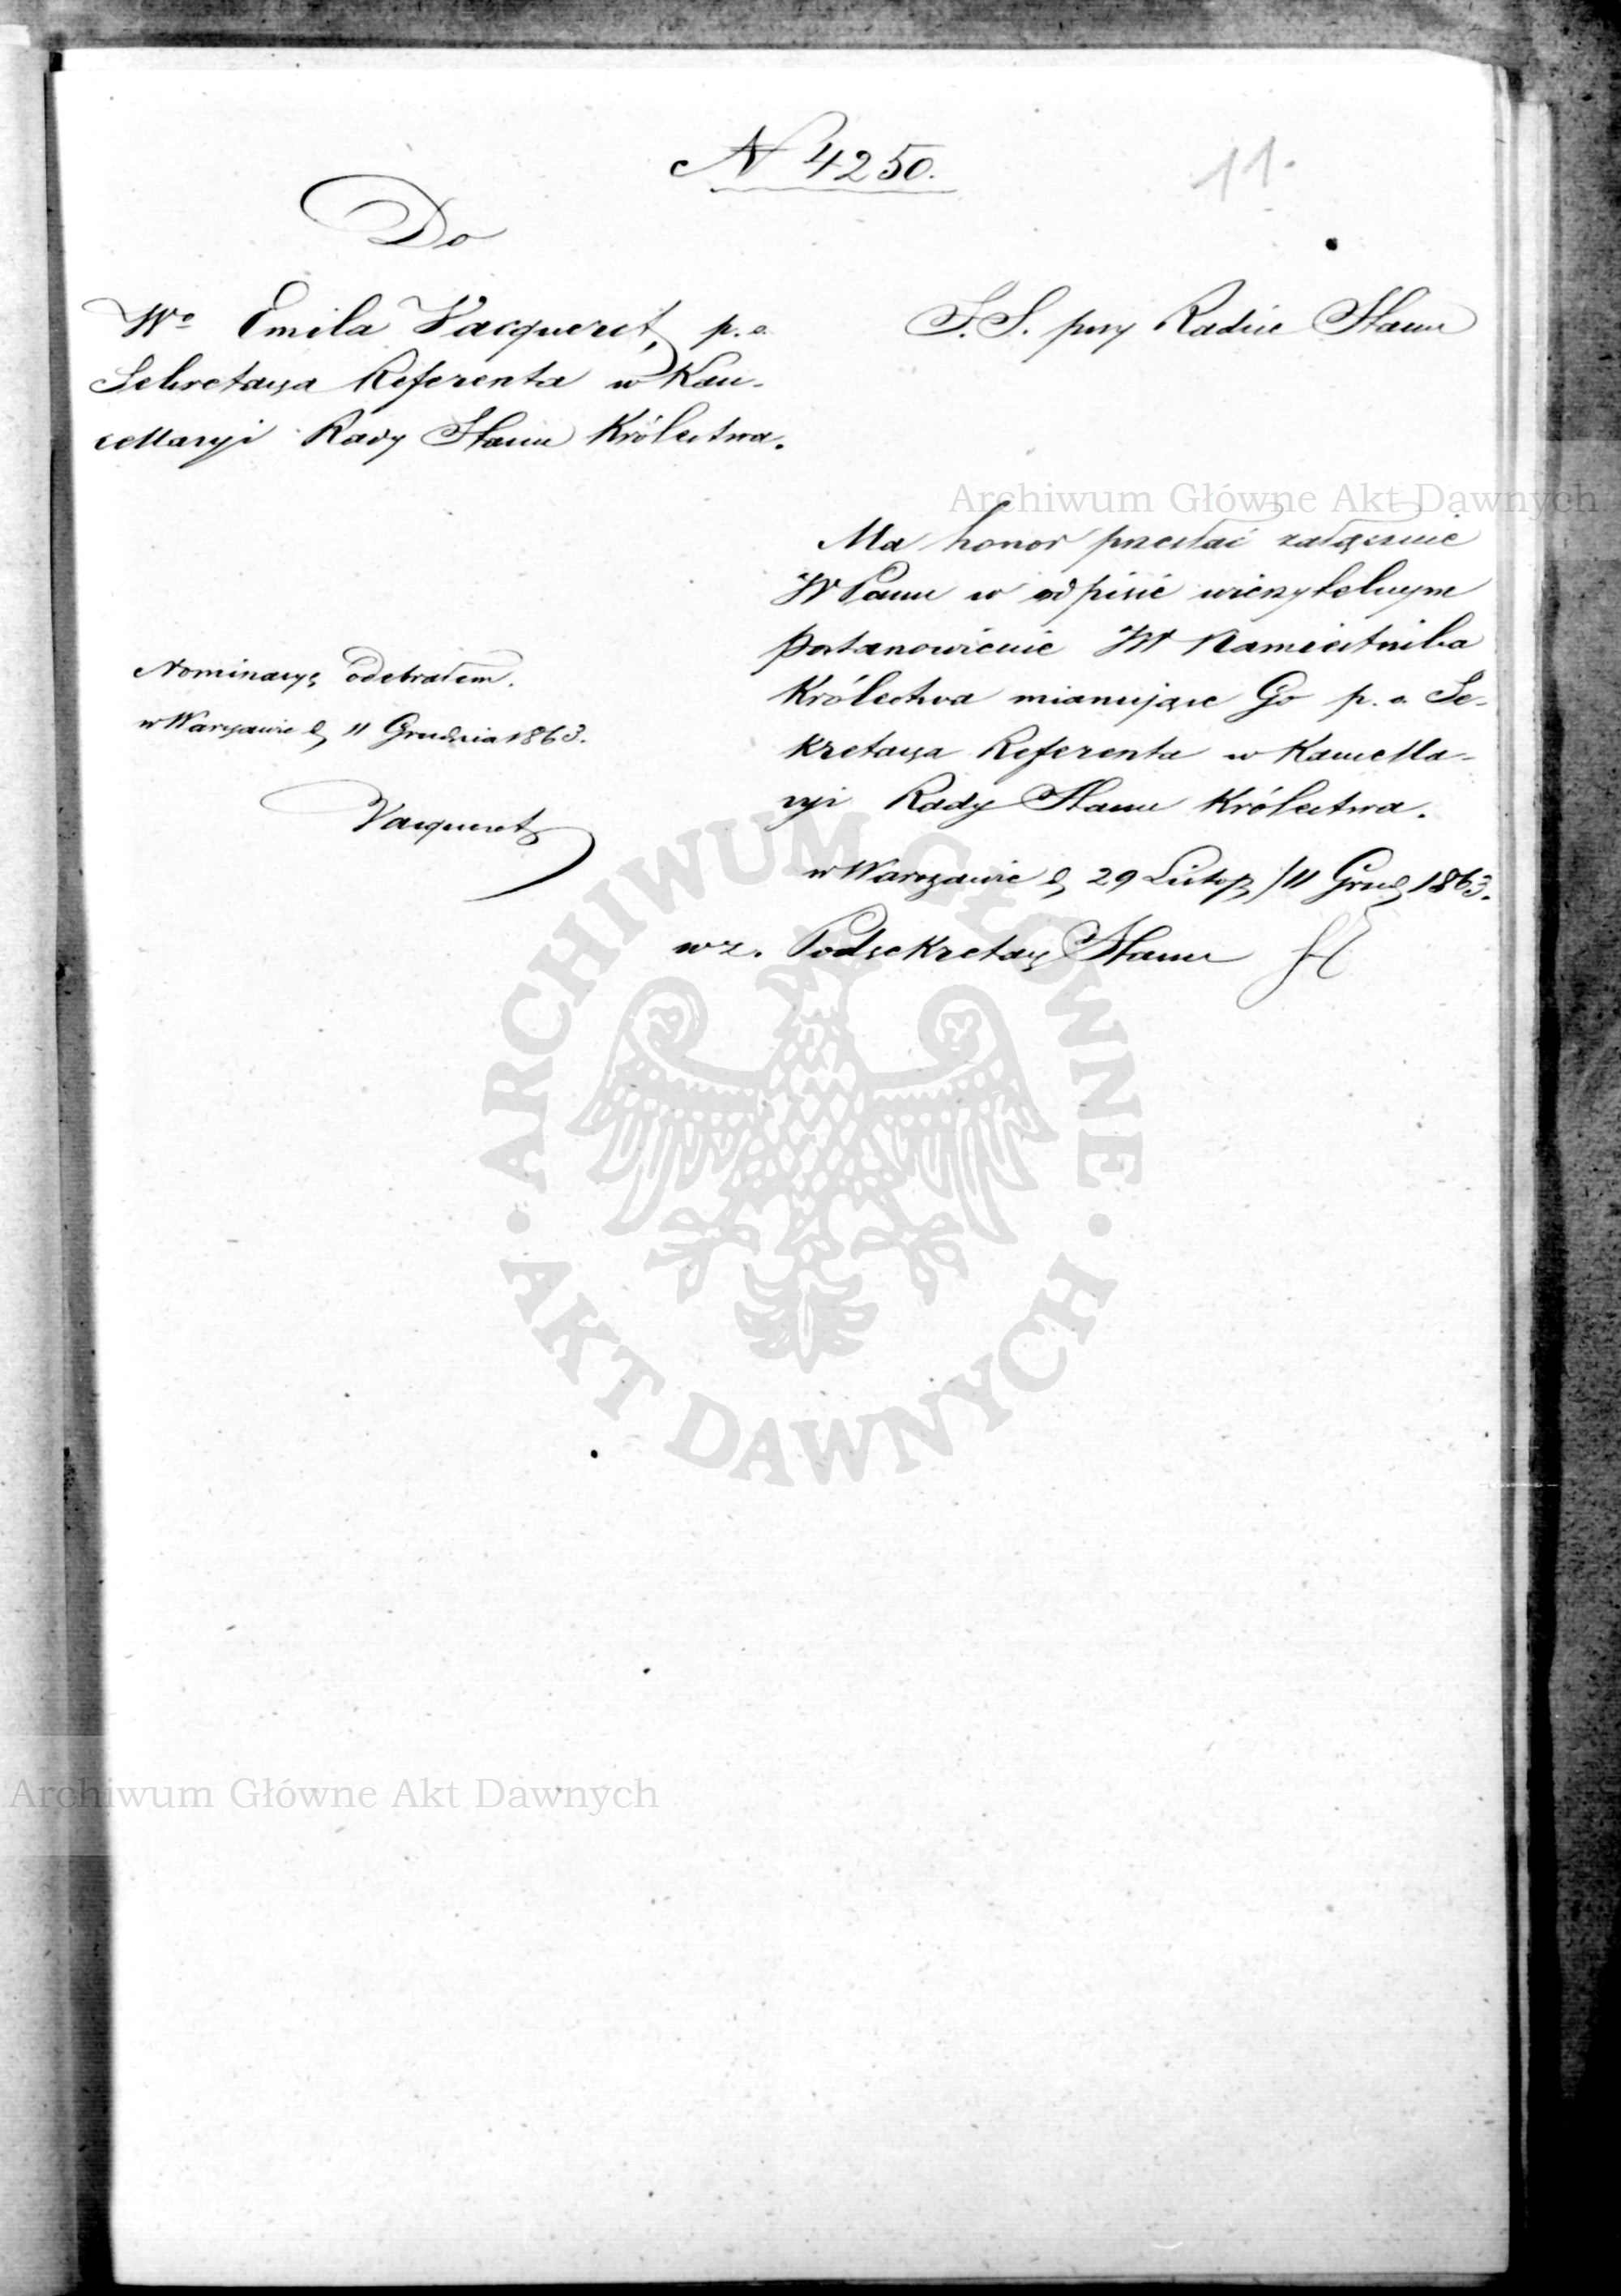 N 4250.
11.
Do
Wo Emila Vacqueret, p. o.
Sekretarza Referenta w Kan-
cellaryi Rady Stanu Królestwa.
S. S. przy Radzie Stanu
Ma honor przesłać załącznie
WPanu w odpisie wierzytelnym
postanowienie JW Namiestnika
Królestwa mianujące Go p. o. Se-
kretarza Referenta w Kancella-
ryi Rady Stanu Królestwa.
w Warszawie d. 29 Listop. / 11 Grud. 1863.
wz. Podsekretarz Stanu
Nominacyę odebrałem.
w Warszawie d. 11 Grudnia 1863.
Vacqueret
Archiwum Główne Akt Dawnych
ARCHIWUM GŁÓWNE
AKT DAWNYCH
Archiwum Główne Akt Dawnych